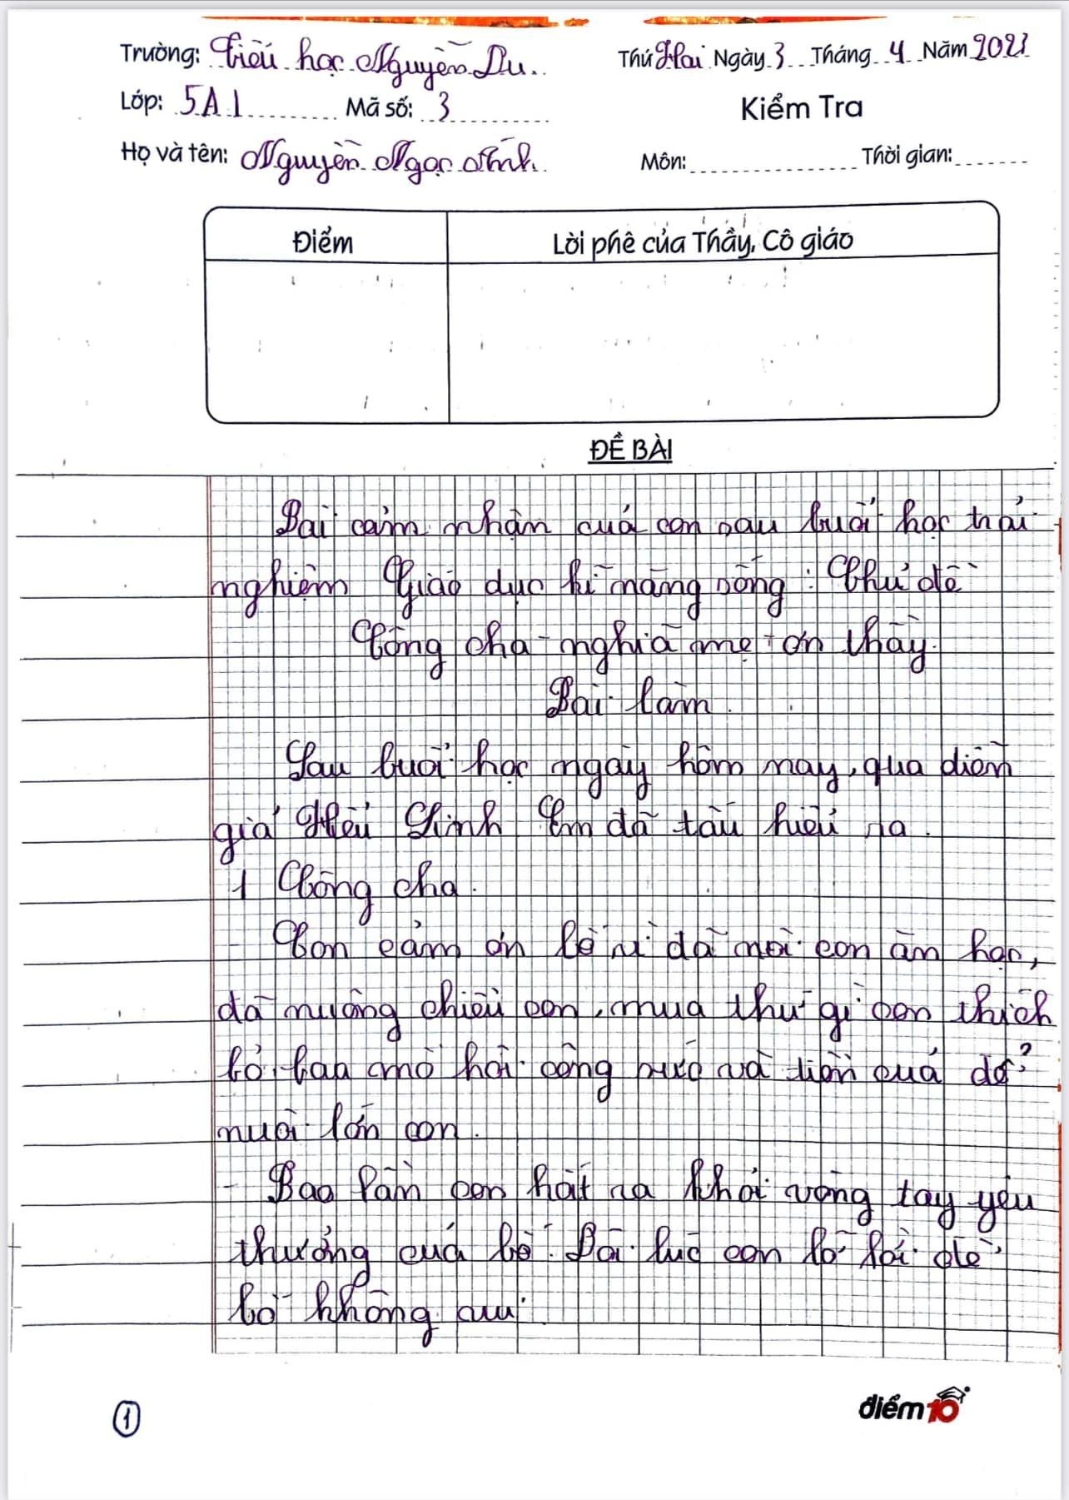 Trường: Tiểu học Nguyễn Du. Thứ Hai Ngày 3 Tháng 4 Năm 2023
Lớp: 5A1 Mã số: 3 Kiểm Tra
Họ và tên: Nguyễn Ngọc Ánh Môn: Thời gian:
Điểm Lời phê của Thầy, Cô giáo
ĐỀ BÀI
Bài cảm nhận của con sau buổi học trải
nghiệm Giáo dục kĩ năng sống: Chủ đề
Công cha - nghĩa mẹ - ơn thầy.
Bài làm.
Sau buổi học ngày hôm nay, qua diễn
giả Hiếu Sinh Em đã thấu hiểu ra.
1 Công cha.
- Con cảm ơn bố vì đã nuôi con ăn học,
đã nuông chiều con, mua thứ gì con thích
bỏ bao mồ hôi công sức và tiền của để
nuôi lớn con.
- Bao lần con hất ra khỏi vòng tay yêu
thương của bố. Đôi lúc con lỡ lời để
bố không vui
1
điểm10